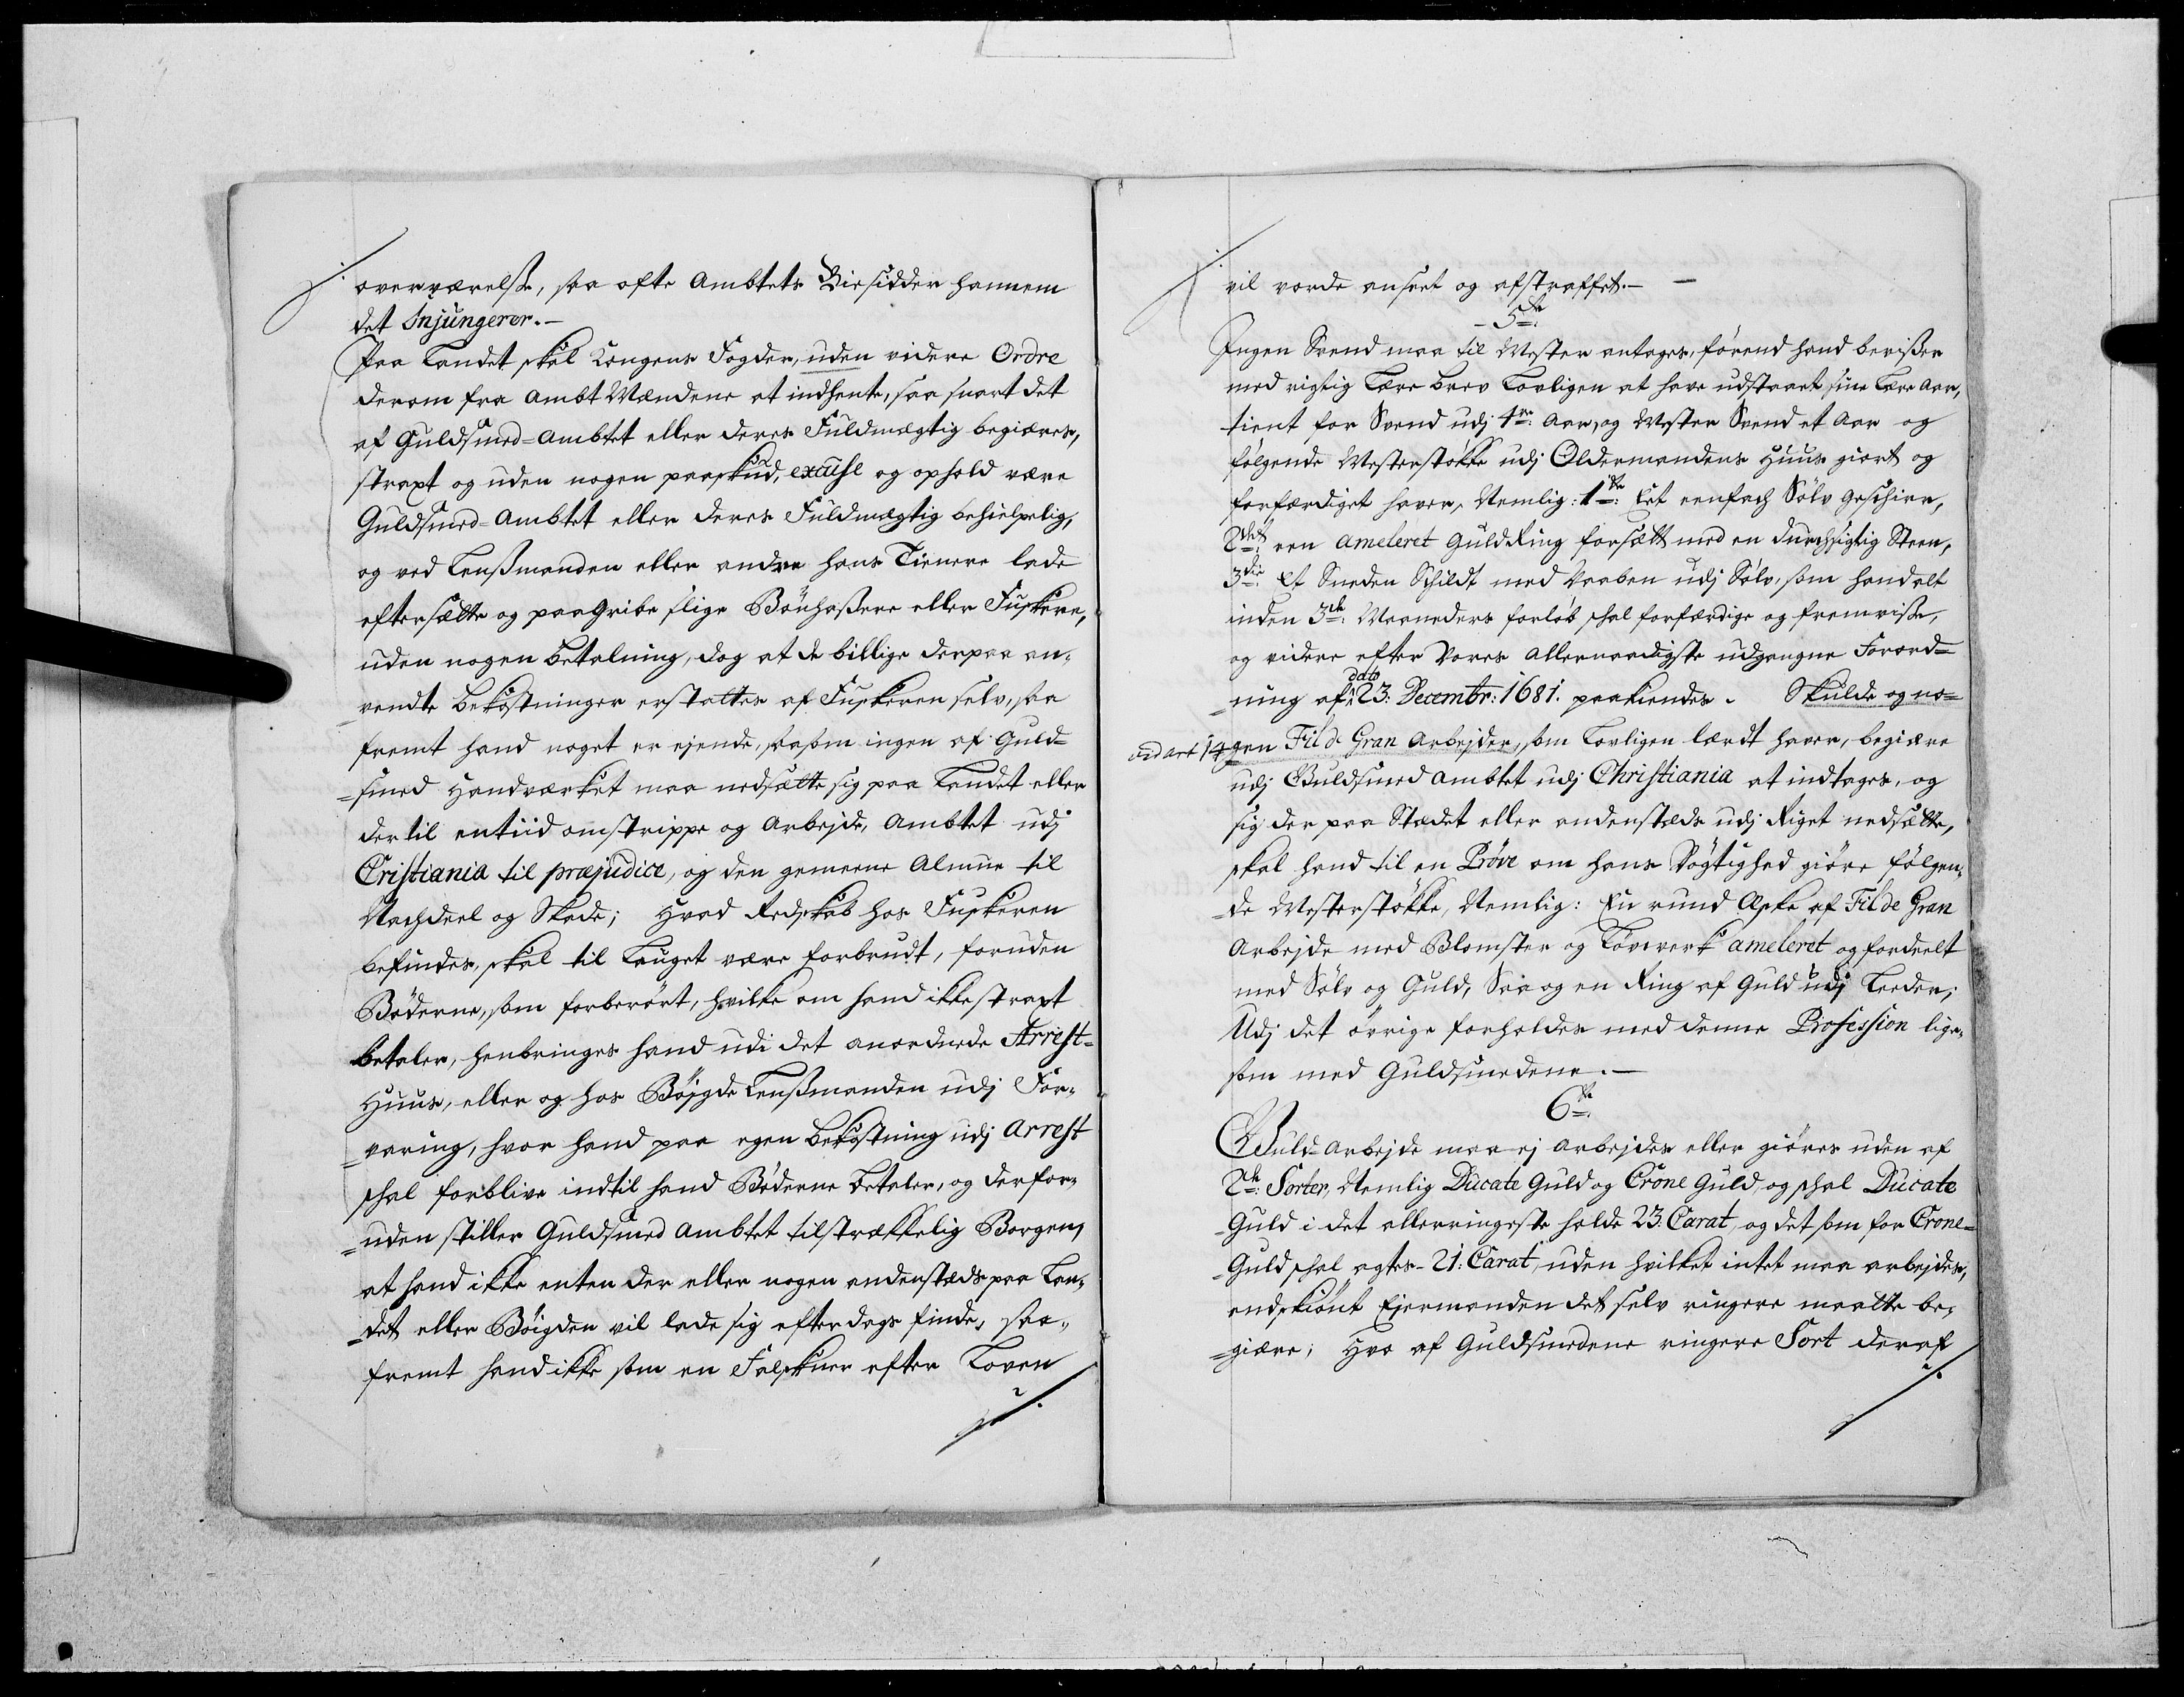 overværelsse, saa ofte Ambtets Biesidder hannem
det Injungerer.-
Paa Landet skal Kongens Fogder, uden videre Ordre
derom fra Ambt Mændene at indhente, saa snart det
af Guldsmed-Ambtet eller deres Fuldmægtig begiæres,
straxt og uden nogen paaskud, excuse og ophold være
Guldsmed-Ambtet eller deres Fuldmægtig behielpelig,
og ved Lenßmanden eller andre hans Tienere lade
eftersætte og paagribe slige Bönhaßere eller Fuskere,
uden nogen betalning, dog at de billige derpaa an-
=vendte bekostninger erstattes af Fuskeren selv, saa
fremt hand noget er ejende, saasom ingen af Guld=
=smed Handværket maa nedsætte sig paa Landet eller
dertil entiid omstrippe og Arbejde, Ambtet udj
Cristiania til præjudice, og den gemeene Almue til
Nachdeel og Skade; Hvad Redskab hos Fuskeren
befindes, skal til Lauget være forbrudt, foruden
Böderne, som forberört, hvilke om hand ikke straxt
betaler, henbringes hand udi det anordnede Arrest=
Huus, eller og hos Böjgde Lenßmanden udj For-
=varing, hvor hand paa egen bekostning udj Arrest
skal forblive indtil hand Böderne betaler, og derfor-
=uden stiller Guldsmed Ambtet tilstrækkelig Borgen,
at hand ikke enten der eller nogen andenstæds paa Lan-
=det eller Böigden vil lade sig efterdags finde, saa-
fremt hand ikke som en Falskner efter Loven
vil vorde anseet og afstraffet.-
-5te:
Ingen Svend maa til Mester antages, förend hand beviser
med rigtig Lære brev Lovligen at have udstaaet sine Lære Aar,
tient for Svend udj 4re: Aar, og Mester Svend et Aar og
fölgende Mesterstökke udj Oldermandens Huus giort og
forfærdiget haver, Nemlig: 1te: Eet eenfach Sölv Geschirr,
2det: een ameleret Guld Ring forsætt med en durchsigtig Steen,
3die: Et Sneden Schildt med Vaaben udj Sölv, som hand alt
inden 3de: Maaneders forlöb skal forfærdige og fremvise,
og videre efter Vores allernaadigste udgangne Forord=
dato
=ning af 23: Decembr: 1681. paakiendes. Skulde og no=
vid art 14 gen Fil de Gran Arbejder, som Lovligen lærdt haver, begiære
udj Guldsmed Ambtet udj Christiania at indtages, og
sig der paa Stædet eller andenstæds udj Riget nedsætte,
skal hand til en Pröve om hans Dögtighed giöre fölgen-
=de Mesterstökke, Nemlig: En rund Æske af Fil de Gran
Arbejde med Blomster og Löfverk ameleret og fordeelt
med Sölv og Guld, Saa og en Ring af Guld udj Leeder;
Udj det övrige forholdes med denne Profession lige-
som med Guldsmedene.-
6te:
Guld-Arbejde maa ej Arbejdes eller giöres uden af
2de: Sorter, Nemlig Ducate Guld og Crone Guld, og skal Ducate
Guld i det allerringeste holde 23: Carat, og det som for Crone=
=Guld skal agtes- 21: Carat, uden hvilket intet maa arbejdes,
endskiönt Ejermanden det selv ringere maatte be-
=giære; Hvo af Guldsmedene ringere Sort deraf